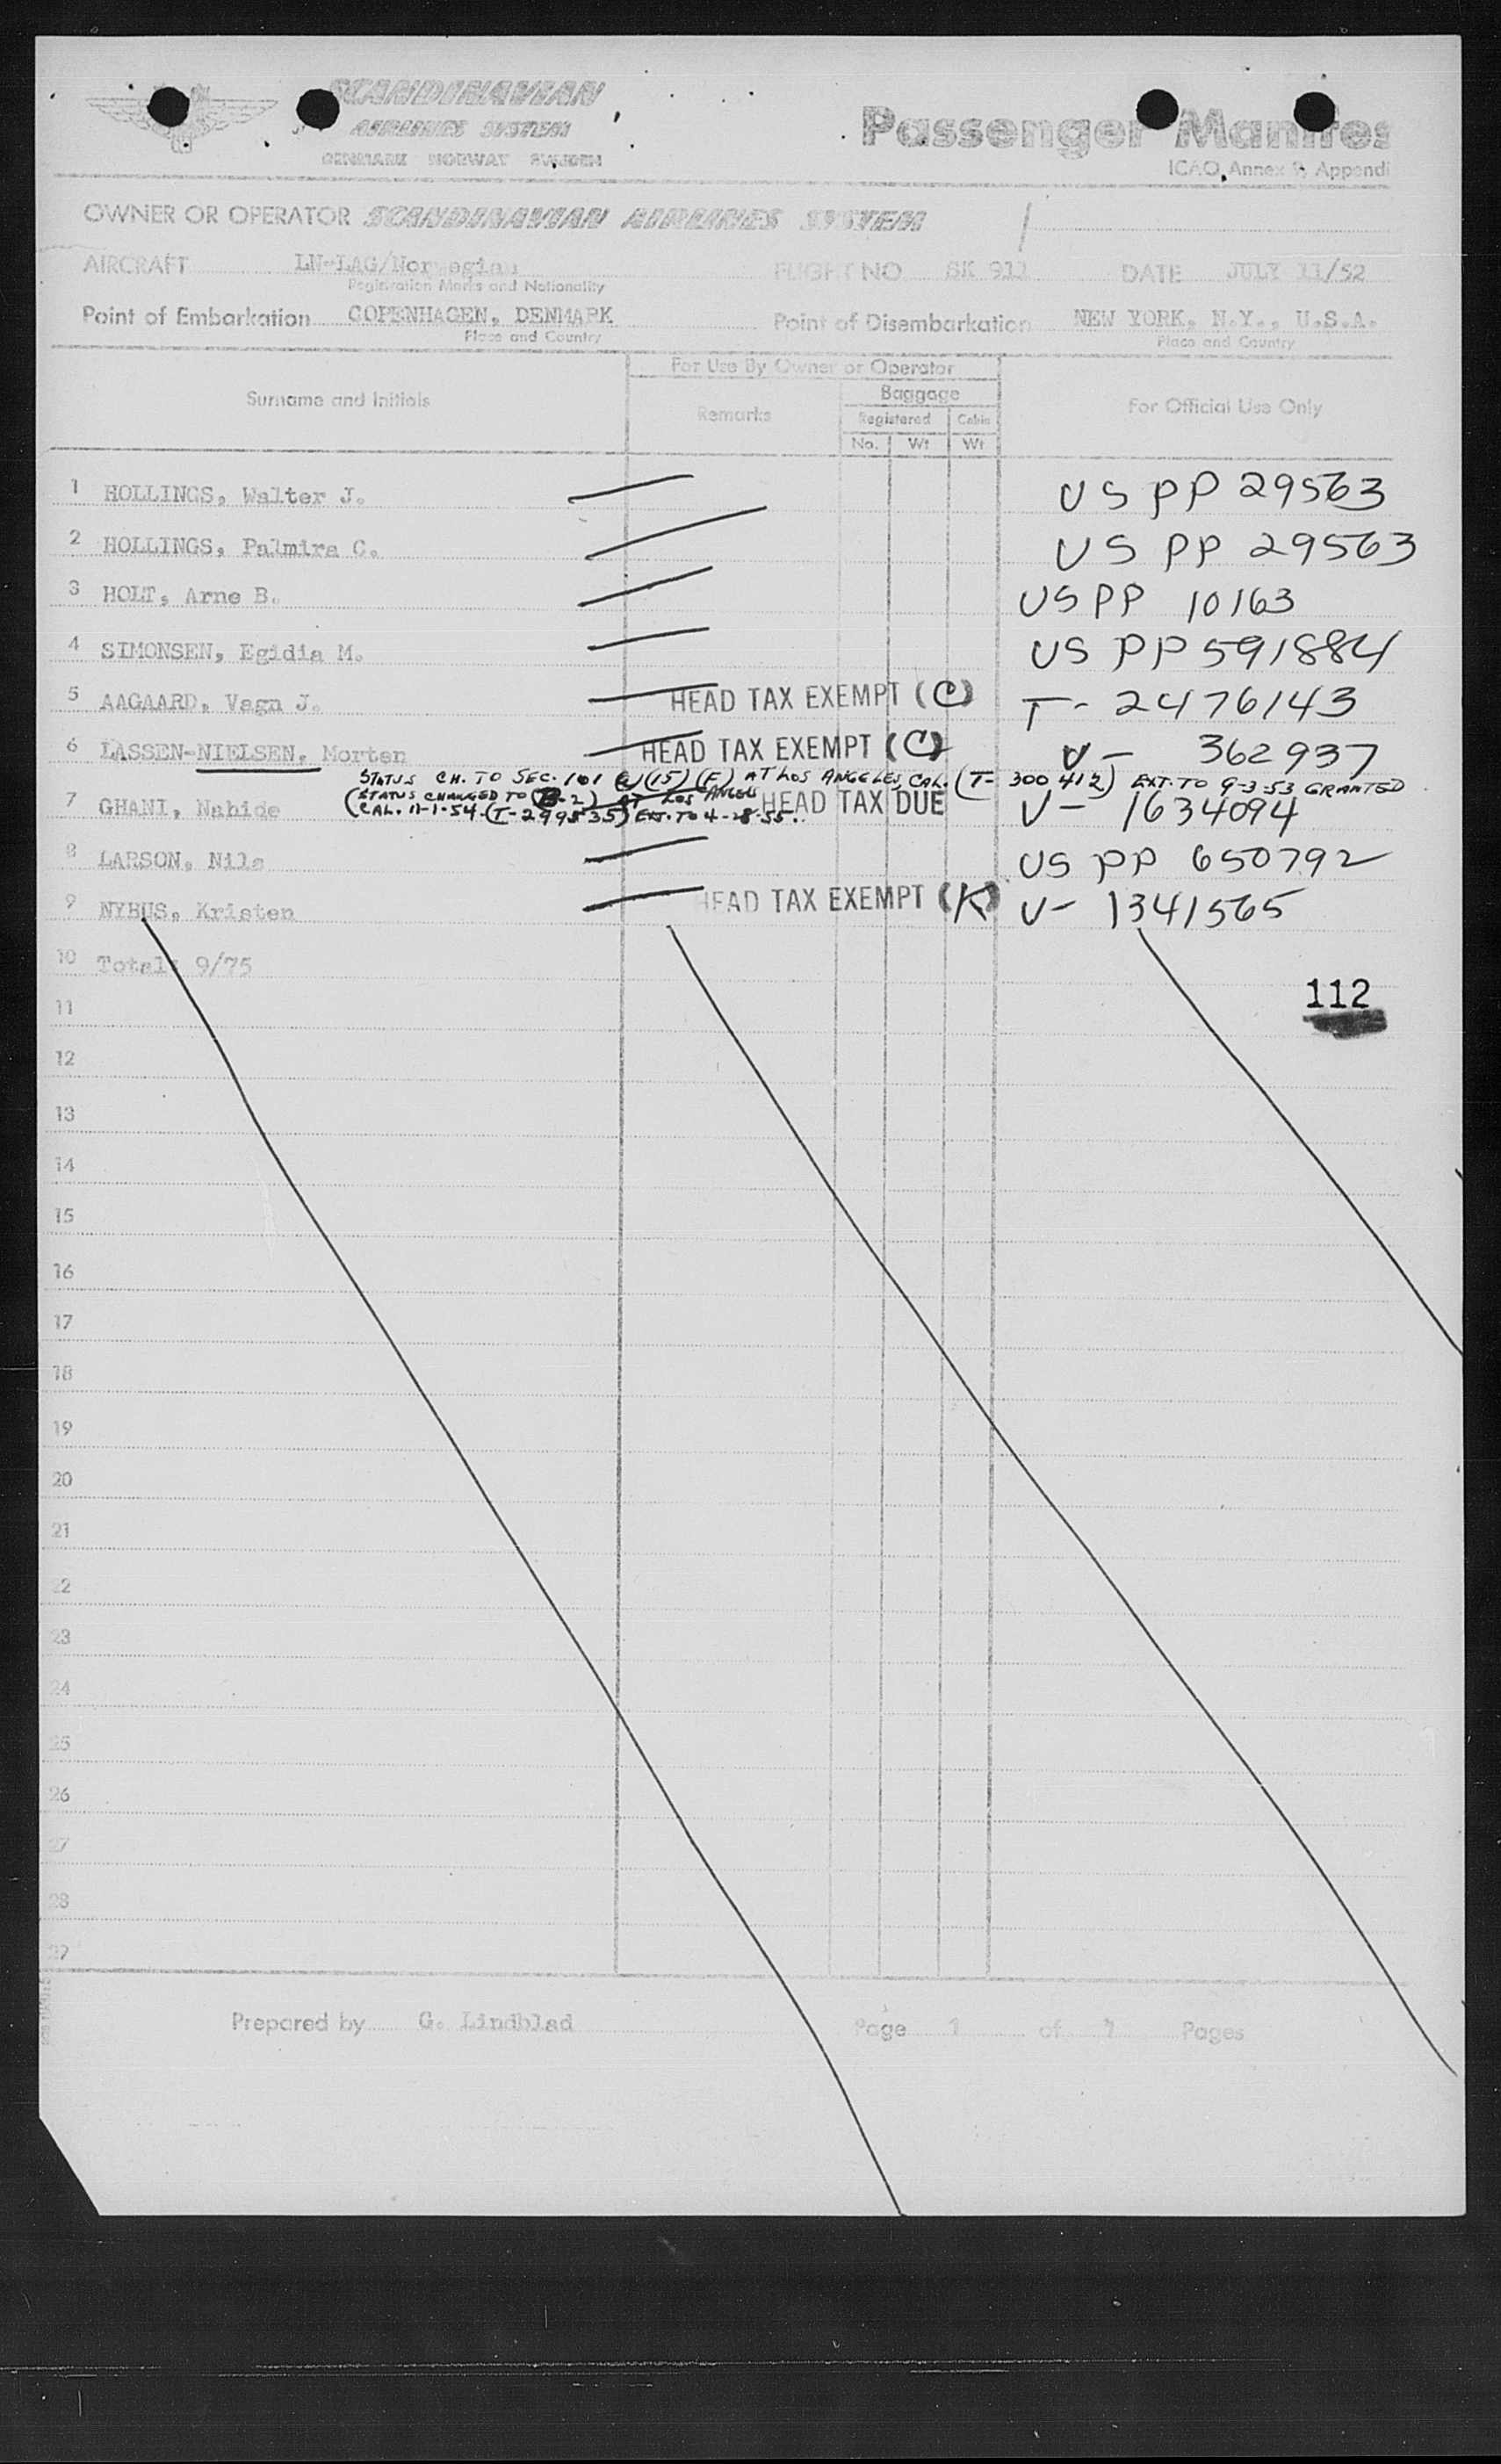 SCANDINAVIAN
AIRLINES SYSTEM
DENMARK NORWAY SWEDEN
Passenger Manifes
ICAO, Annex 9, Appendi
OWNER OR OPERATOR SCANDINAVIAN AIRLINES SYSTEM
AIRCRAFT LN-LAG/Norwegian FLIGHT NO SK 911 DATE JULY 11/52
Registration Marks and Nationality
Point of Embarkation COPENHAGEN, DENMARK Point of Disembarkation NEW YORK, N.Y., U.S.A.
Place and Country Place and Country
For Use By Owner or Operator
Surname and Initials Remarks Baggage For Official Use Only
Registered Cabin
No. Wt Wt
1 HOLLINGS, Walter J. US PP 29563
2 HOLLINGS, Palmira C. US PP 29563
3 HOLT, Arne B. US PP 10163
4 SIMONSEN, Egidia M. US PP 591884
5 AAGAARD, Vagn J. HEAD TAX EXEMPT (C) T- 2476143
6 LASSEN-NIELSEN, Morten HEAD TAX EXEMPT (C) V- 362937
STATUS CH. TO SEC. 101 (15) (F) AT LOS ANGELES, CAL. (T- 300 412) EXT. TO 9-3-53 GRANTED
(STATUS CHANGED TO (B-2) AT LOS ANGELES
7 GHANI, Nahide CAL. 11-1-54. (T-2998535) EXT. TO 4-28-55. HEAD TAX DUE V- 1634094
8 LARSON, Nils US PP 650792
9 NYHUS, Kristen HEAD TAX EXEMPT (K) V- 1341565
10 Total: 9/75
112
11
12
13
14
15
16
17
18
19
20
21
22
23
24
25
26
27
28
29
Prepared by G. Lindblad Page 1 of 7 Pages